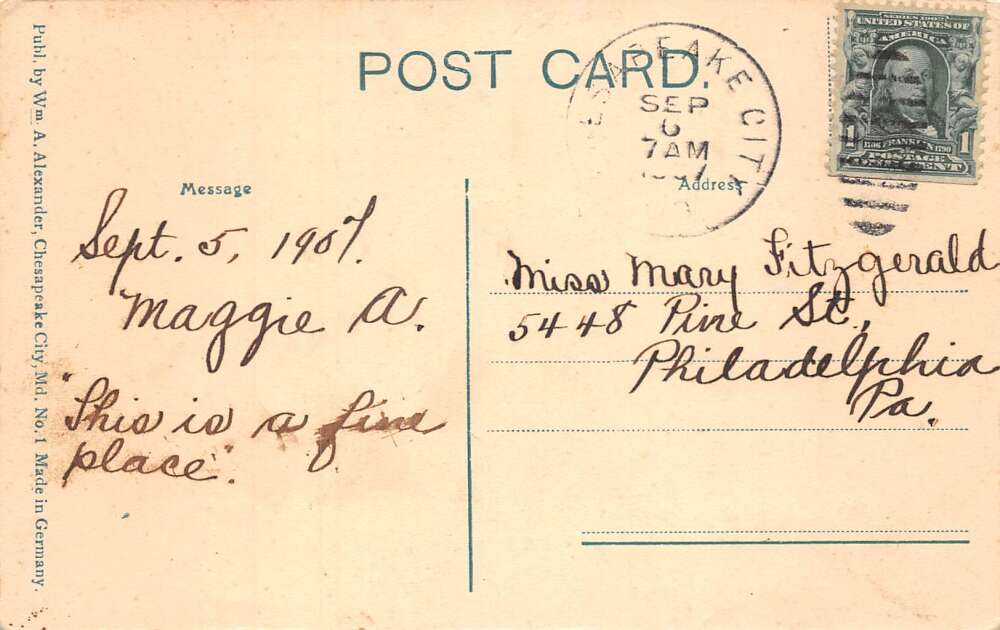 POST CARD.
ESAPEAKE CITY
SEP
6
7AM
1907
SERIES 1902
UNITED STATES OF
AMERICA
1 1
1706 FRANKLIN 1790
POSTAGE
ONE CENT
Message
Address
Sept. 5, 1907.
Maggie A.
"This is a fine
place".
Miss Mary Fitzgerald
5448 Pine St.,
Philadelphia
Pa.
Publ. by Wm. A. Alexander, Chesapeake City, Md. No. 1 Made in Germany.